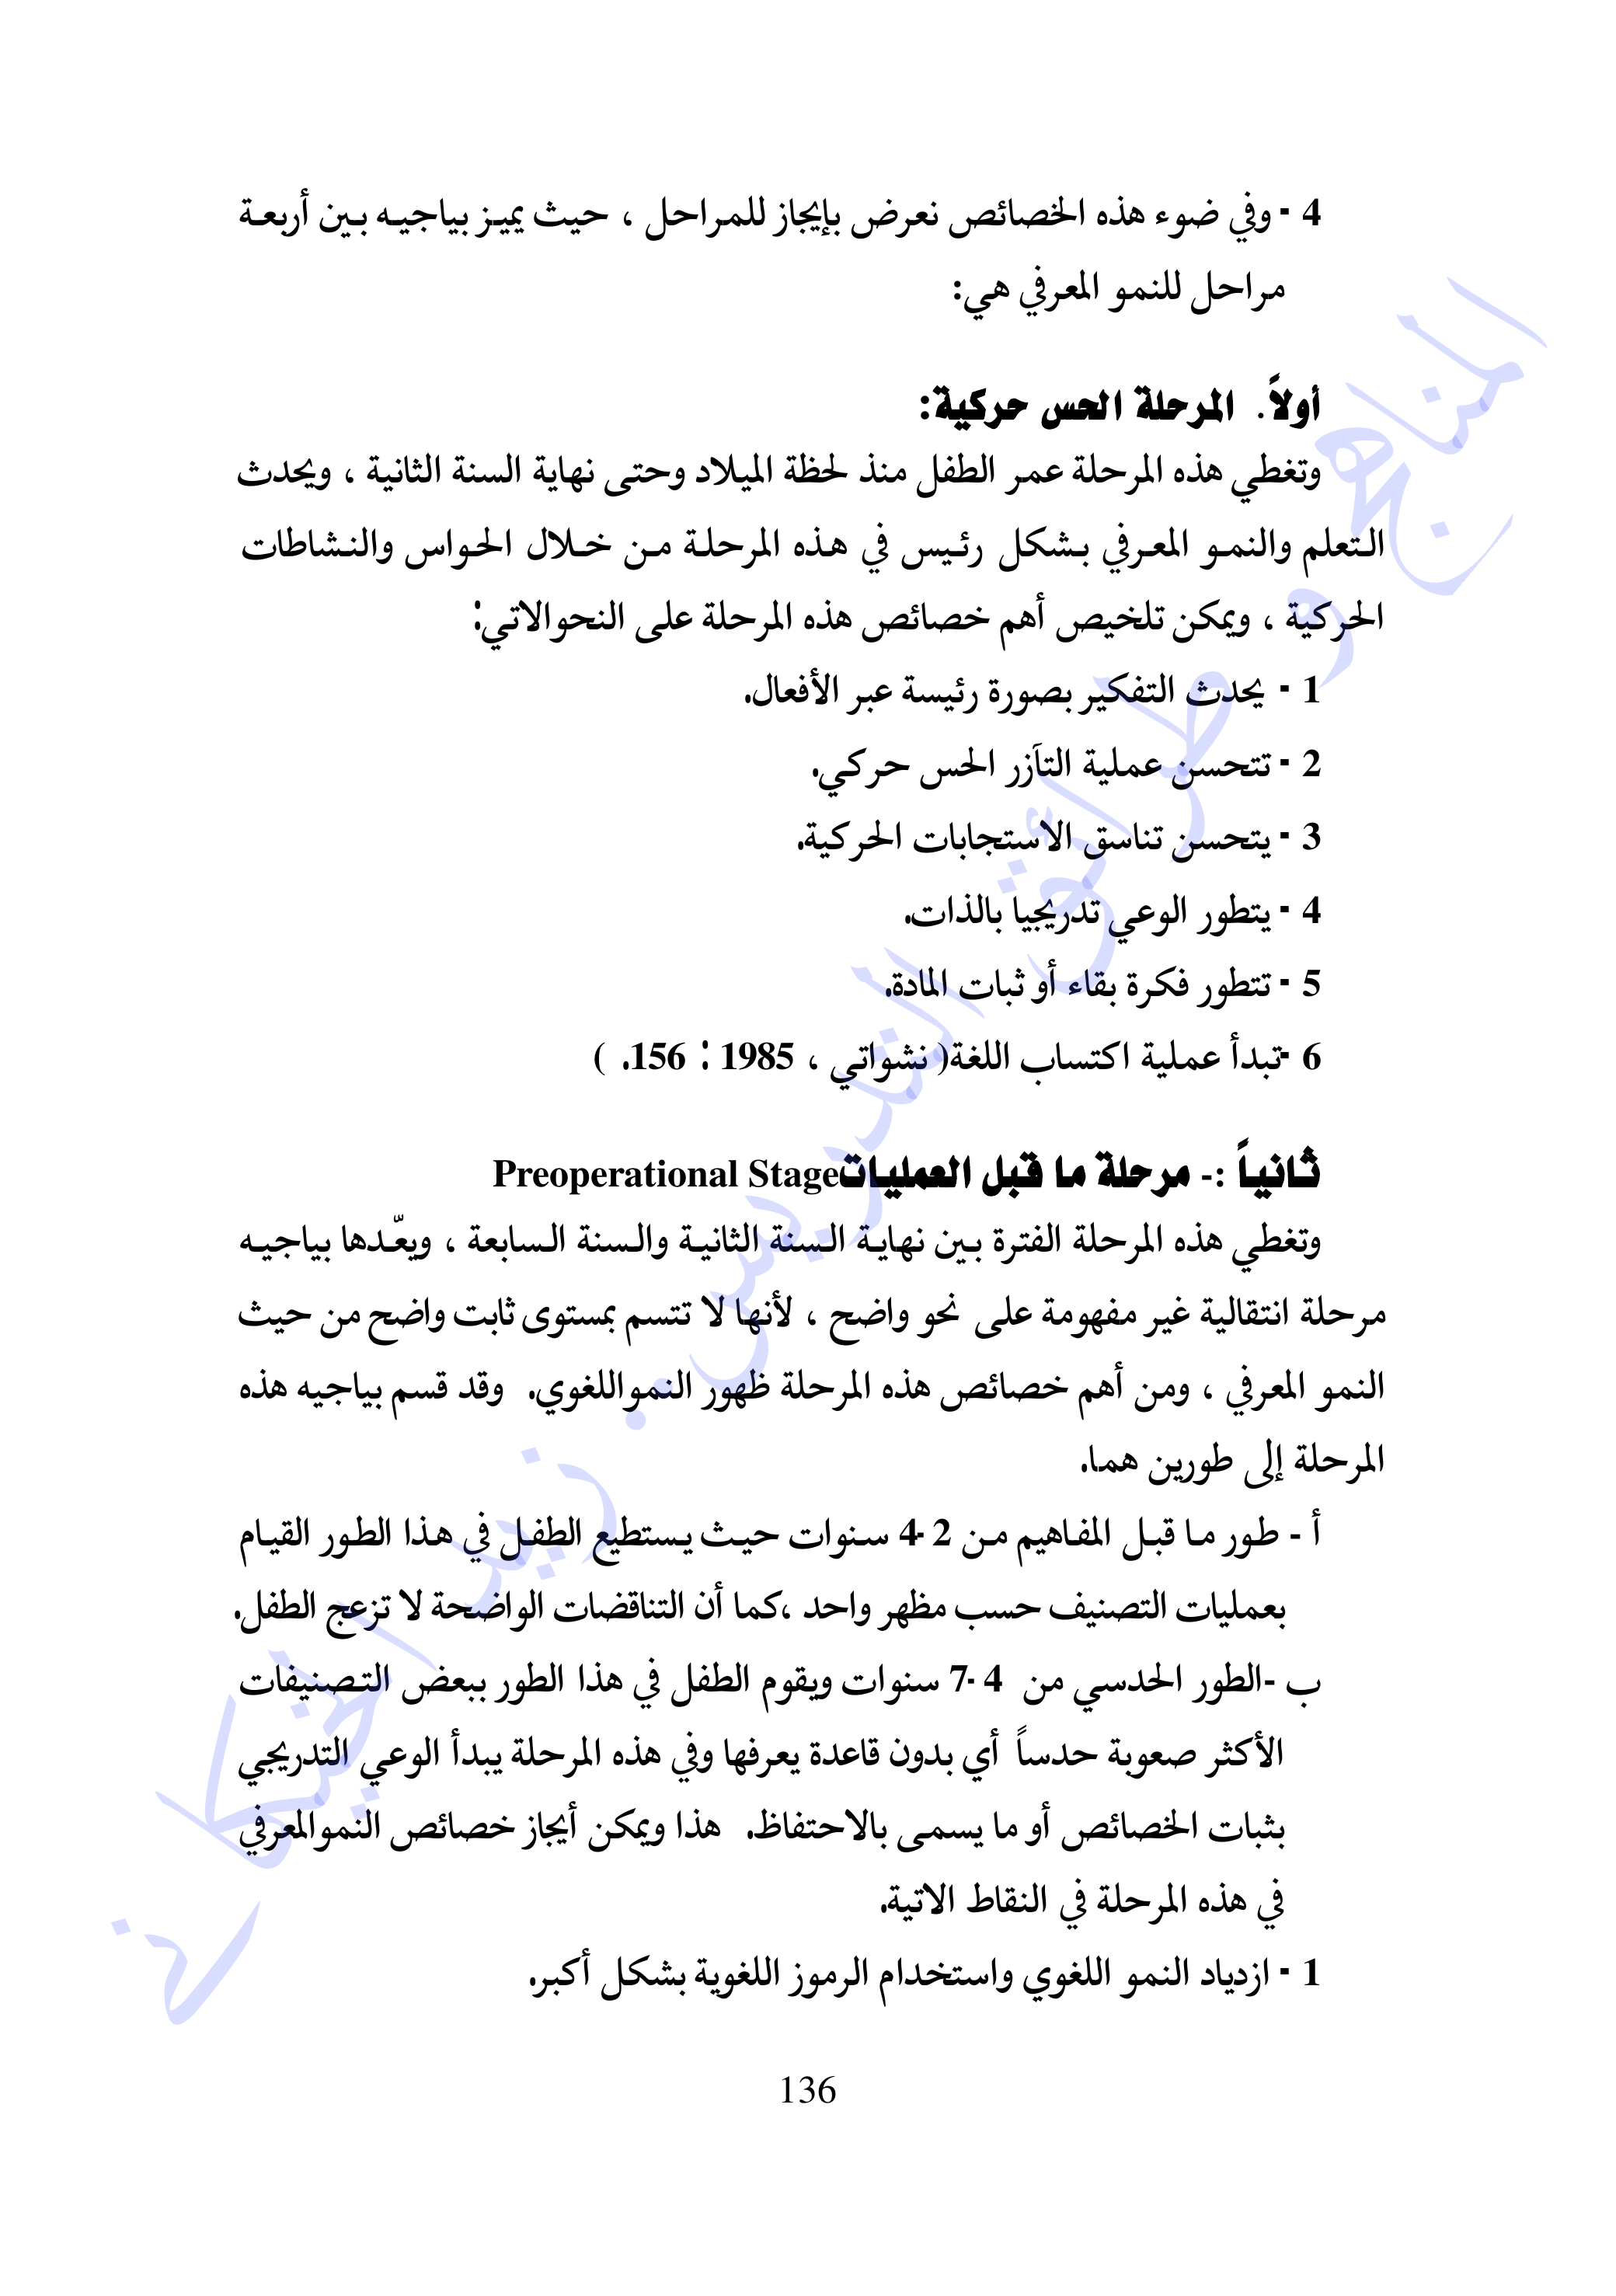 4 - وفي ضوء هذه الخصائص نعرض بإيجاز للمراحل ، حيث يميز بياجيه بين أربعة
مراحل للنمو المعرفي هي:
أولاً. المرحلة الحس حركية:
وتغطي هذه المرحلة عمر الطفل منذ لحظة الميلاد وحتى نهاية السنة الثانية ، ويحدث
التعلم والنمو المعرفي بشكل رئيس في هذه المرحلة من خلال الحواس والنشاطات
الحركية ، ويمكن تلخيص أهم خصائص هذه المرحلة على النحوالاتي:
1 - يحدث التفكير بصورة رئيسة عبر الأفعال.
2 - تتحسن عملية التآزر الحس حركي.
3 - يتحسن تناسق الاستجابات الحركية.
4 - يتطور الوعي تدريجيا بالذات.
5 - تتطور فكرة بقاء أو ثبات المادة.
6 -تبدأ عملية اكتساب اللغة( نشواتي ، 1985 : 156. )
ثانياً :- مرحلة ما قبل العملياتPreoperational Stage
وتغطي هذه المرحلة الفترة بين نهاية السنة الثانية والسنة السابعة ، ويعّدها بياجيه
مرحلة انتقالية غير مفهومة على نحو واضح ، لأنها لا تتسم بمستوى ثابت واضح من حيث
النمو المعرفي ، ومن أهم خصائص هذه المرحلة ظهور النمواللغوي. وقد قسم بياجيه هذه
المرحلة إلى طورين هما.
أ - طور ما قبل المفاهيم من 2-4 سنوات حيث يستطيع الطفل في هذا الطور القيام
بعمليات التصنيف حسب مظهر واحد ،كما أن التناقضات الواضحة لا تزعج الطفل.
ب -الطور الحدسي من 4-7 سنوات ويقوم الطفل في هذا الطور ببعض التصنيفات
الأكثر صعوبة حدساً أي بدون قاعدة يعرفها وفي هذه المرحلة يبدأ الوعي التدريجي
بثبات الخصائص أو ما يسمى بالاحتفاظ. هذا ويمكن أيجاز خصائص النموالمعرفي
في هذه المرحلة في النقاط الاتية.
1 - ازدياد النمو اللغوي واستخدام الرموز اللغوية بشكل أكبر.
136